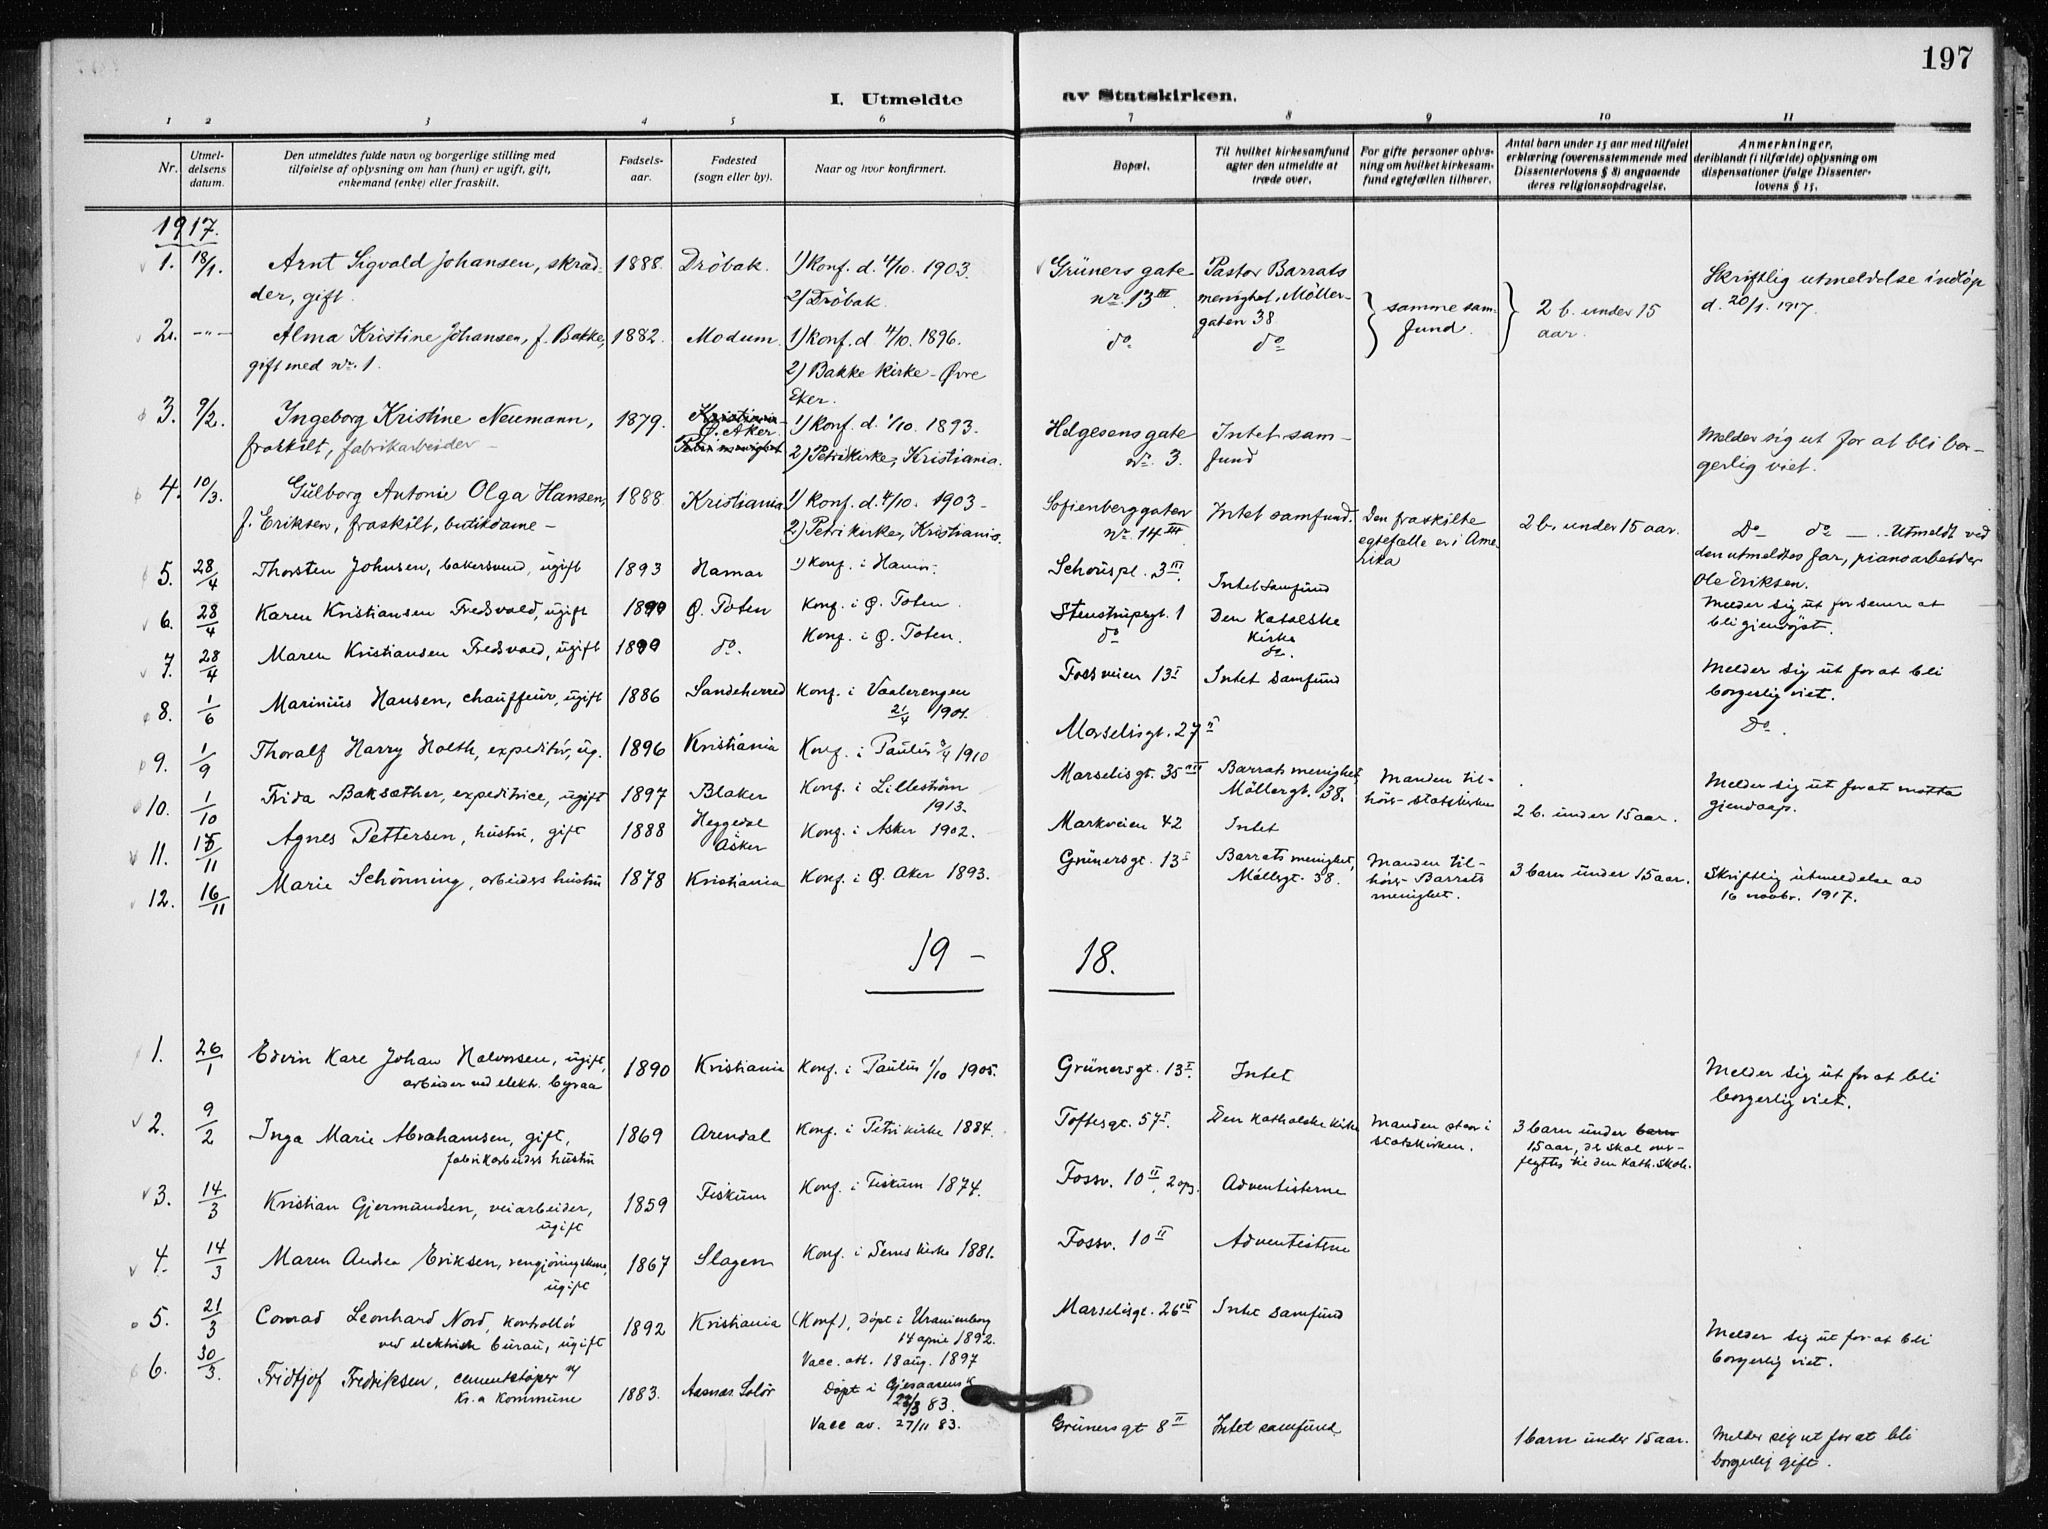 197
I. Utmeldte av Statskirken.
1 2 3 4 5 6 7 8 9 10 11
Nr.
Utmel-
delsens
datum.
Den utmeldtes fulde navn og borgerlige stilling med
tilføielse af oplysning om han (hun) er ugift, gift,
enkemand (enke) eller fraskilt.
Fødsels-
aar.
Fødested
(sogn eller by).
Naar og hvor konfirmert.
Bopæl.
Til hvilket kirkesamfund
agter den utmeldte at
træde over.
For gifte personer oplys-
ning om hvilket kirkesam-
fund egtefællen tilhører.
Antal barn under 15 aar med tilføiet
erklæring (overensstemmende med
Dissenterlovens § 8) angaaende
deres religionsopdragelse.
Anmerkninger,
deriblandt (i tilfælde) oplysning om
dispensationer ifølge Dissenter-
lovens § 15.
1917.
1. 18/1. Arnt Sigvald Johansen, skræd- 1888. Dröbak. 1) Konf. d. 4/10. 1903. Grüners gate Pastor Barrats
der, gift. 2) Dröbak. nr. 13 III menighet, Möller-
gaten 38. samme sam-
fund. 2 b. under 15
aar. Skriftlig utmeldelse indløp
d. 20/1. 1917.
2. -"- Alma Kristine Johansen, f. Bakke, 1882. Modum. 1) Konf. d. 4/10. 1896. do. do
gift med nr. 1. 2) Bakke kirke - Øvre
Eker.
3. 9/2. Ingeborg Kristine Neumann, 1879. Kristiania Ø. Aker. 1) Konf. d. 1/10. 1893. Helgesens gate Intet sam- Melder sig ut for at bli bor-
fraskilt, fabrikarbeider - Petri menighet 2) Petrikirke, Kristiania. nr. 3. fund gerlig viet.
4. 10/3. Gulborg Antonie Olga Hansen, 1888. Kristiania 1) Konf. d. 4/10. 1903 - Sofienberggaten Intet samfund. Den fraskilte 2 b. under 15 aar. Do do — Utmeldt ved
f. Eriksen, fraskilt, butikdame - 2) Petrikirke, Kristiania. nr. 14 III egtefælle er i Ame-
rika den utmeldtes far, pianoarbeider
Ole Eriksen.
5. 28/4 Thorsten Johnsen, bakersvend, ugift 1893 Hamar 1) Konf. i Hamar. Schouspl. 3 III. Intet samfund
6. 28/4 Karen Kristiansen Fredsvold, ugift 1890 Ø. Toten Konf. i Ø. Toten. Stenstrupsgt. 1 Den Katolske
Kirke Melder sig ut for senere at
bli gjendøpt.
7. 28/4 Maren Kristiansen Fredsvold, ugift 1899 do. Konf. i Ø. Toten. do do.
8. 1/6 Marinius Hansen, chauffeur, ugift 1886 Sandeherred Konf. i Vaalerengen
21/4 1901. Fossveien 13 I Intet samfund Melder sig ut for at bli
borgerlig viet.
9. 1/9 Thoralf Harry Holth, expeditör, ug. 1896 Kristiania Konf. i Paulus 3/4 1910 Marselisgt. 27 II Do.
10. 1/10 Frida Baksæther, expeditrice, ugift 1897 Blaker Konf. i Lilleström
1913. Marselisgt. 35 III Barrats menighet,
Möllergt. 38. Manden til-
hör statskirken Melder sig ut for at motta
gjendaap.
11. 15/11 Agnes Pettersen, hustru, gift 1888 Heggedal
Asker Konf. i Asker 1902. Markveien 42 Intet 2 b. under 15 aar.
12. 16/11 Marie Schönning, arbeiders hustru 1878 Kristiania Konf. i Ø. Aker 1893. Grünersgt. 13 I Barrats menighet,
Möllergt. 38. Manden til-
hör Barrats
menighet. 3 barn under 15 aar. Skriftlig utmeldelse av
16 novbr. 1917.
19 - 18.
1. 26/1 Edvin Karl Johan Halvorsen, ugift,
arbeider ved elektr. byraa 1890 Kristiania Konf. i Paulus 1/10 1905. Grünersgt. 13 II. Intet Melder sig ut for at bli
borgerlig viet.
2. 9/2 Inga Marie Abrahamsen, gift,
fabrikarbeiders hustru 1869 Arendal Konf. i Petri kirke 1884. Toftesgt. 57 I. Den katholske kirke Manden staar i
statskirken. 3 barn under barn
15 aar, de skal over-
flyttes til den Kath. skole.
3. 14/3 Kristian Gjermundsen, veiarbeider,
ugift 1859 Fiskum Konf. i Fiskum 1874. Fossv. 10 II, 2 opg. Adventisterne
4. 14/3 Maren Andrea Eriksen, rengjöringskone,
ugift 1867 Slagen Konf. i Sems kirke 1881. Fossv. 10 II Adventisterne
5. 21/3 Conrad Leonhard Nord, kontrollör
ved elektrisk bureau, ugift 1892 Kristiania (Konf), Döpt i Uranienborg
14 april 1892.
Vacc. att. 18 aug. 1897 Marselisgt. 26 IV Intet samfund Melder sig ut for at bli
borgerlig viet.
6. 30/3. Fridtjof Fredriksen, cementstöper v/
Kr.a kommune 1883. Aasnes Solör Döpt i Gjesaasen k
83.
Vacc av. 27/11 83. Grünersgt 8 II Intet samfund. 1 barn under 15 aar. Melder sig ut for at bli
borgerlig gift.